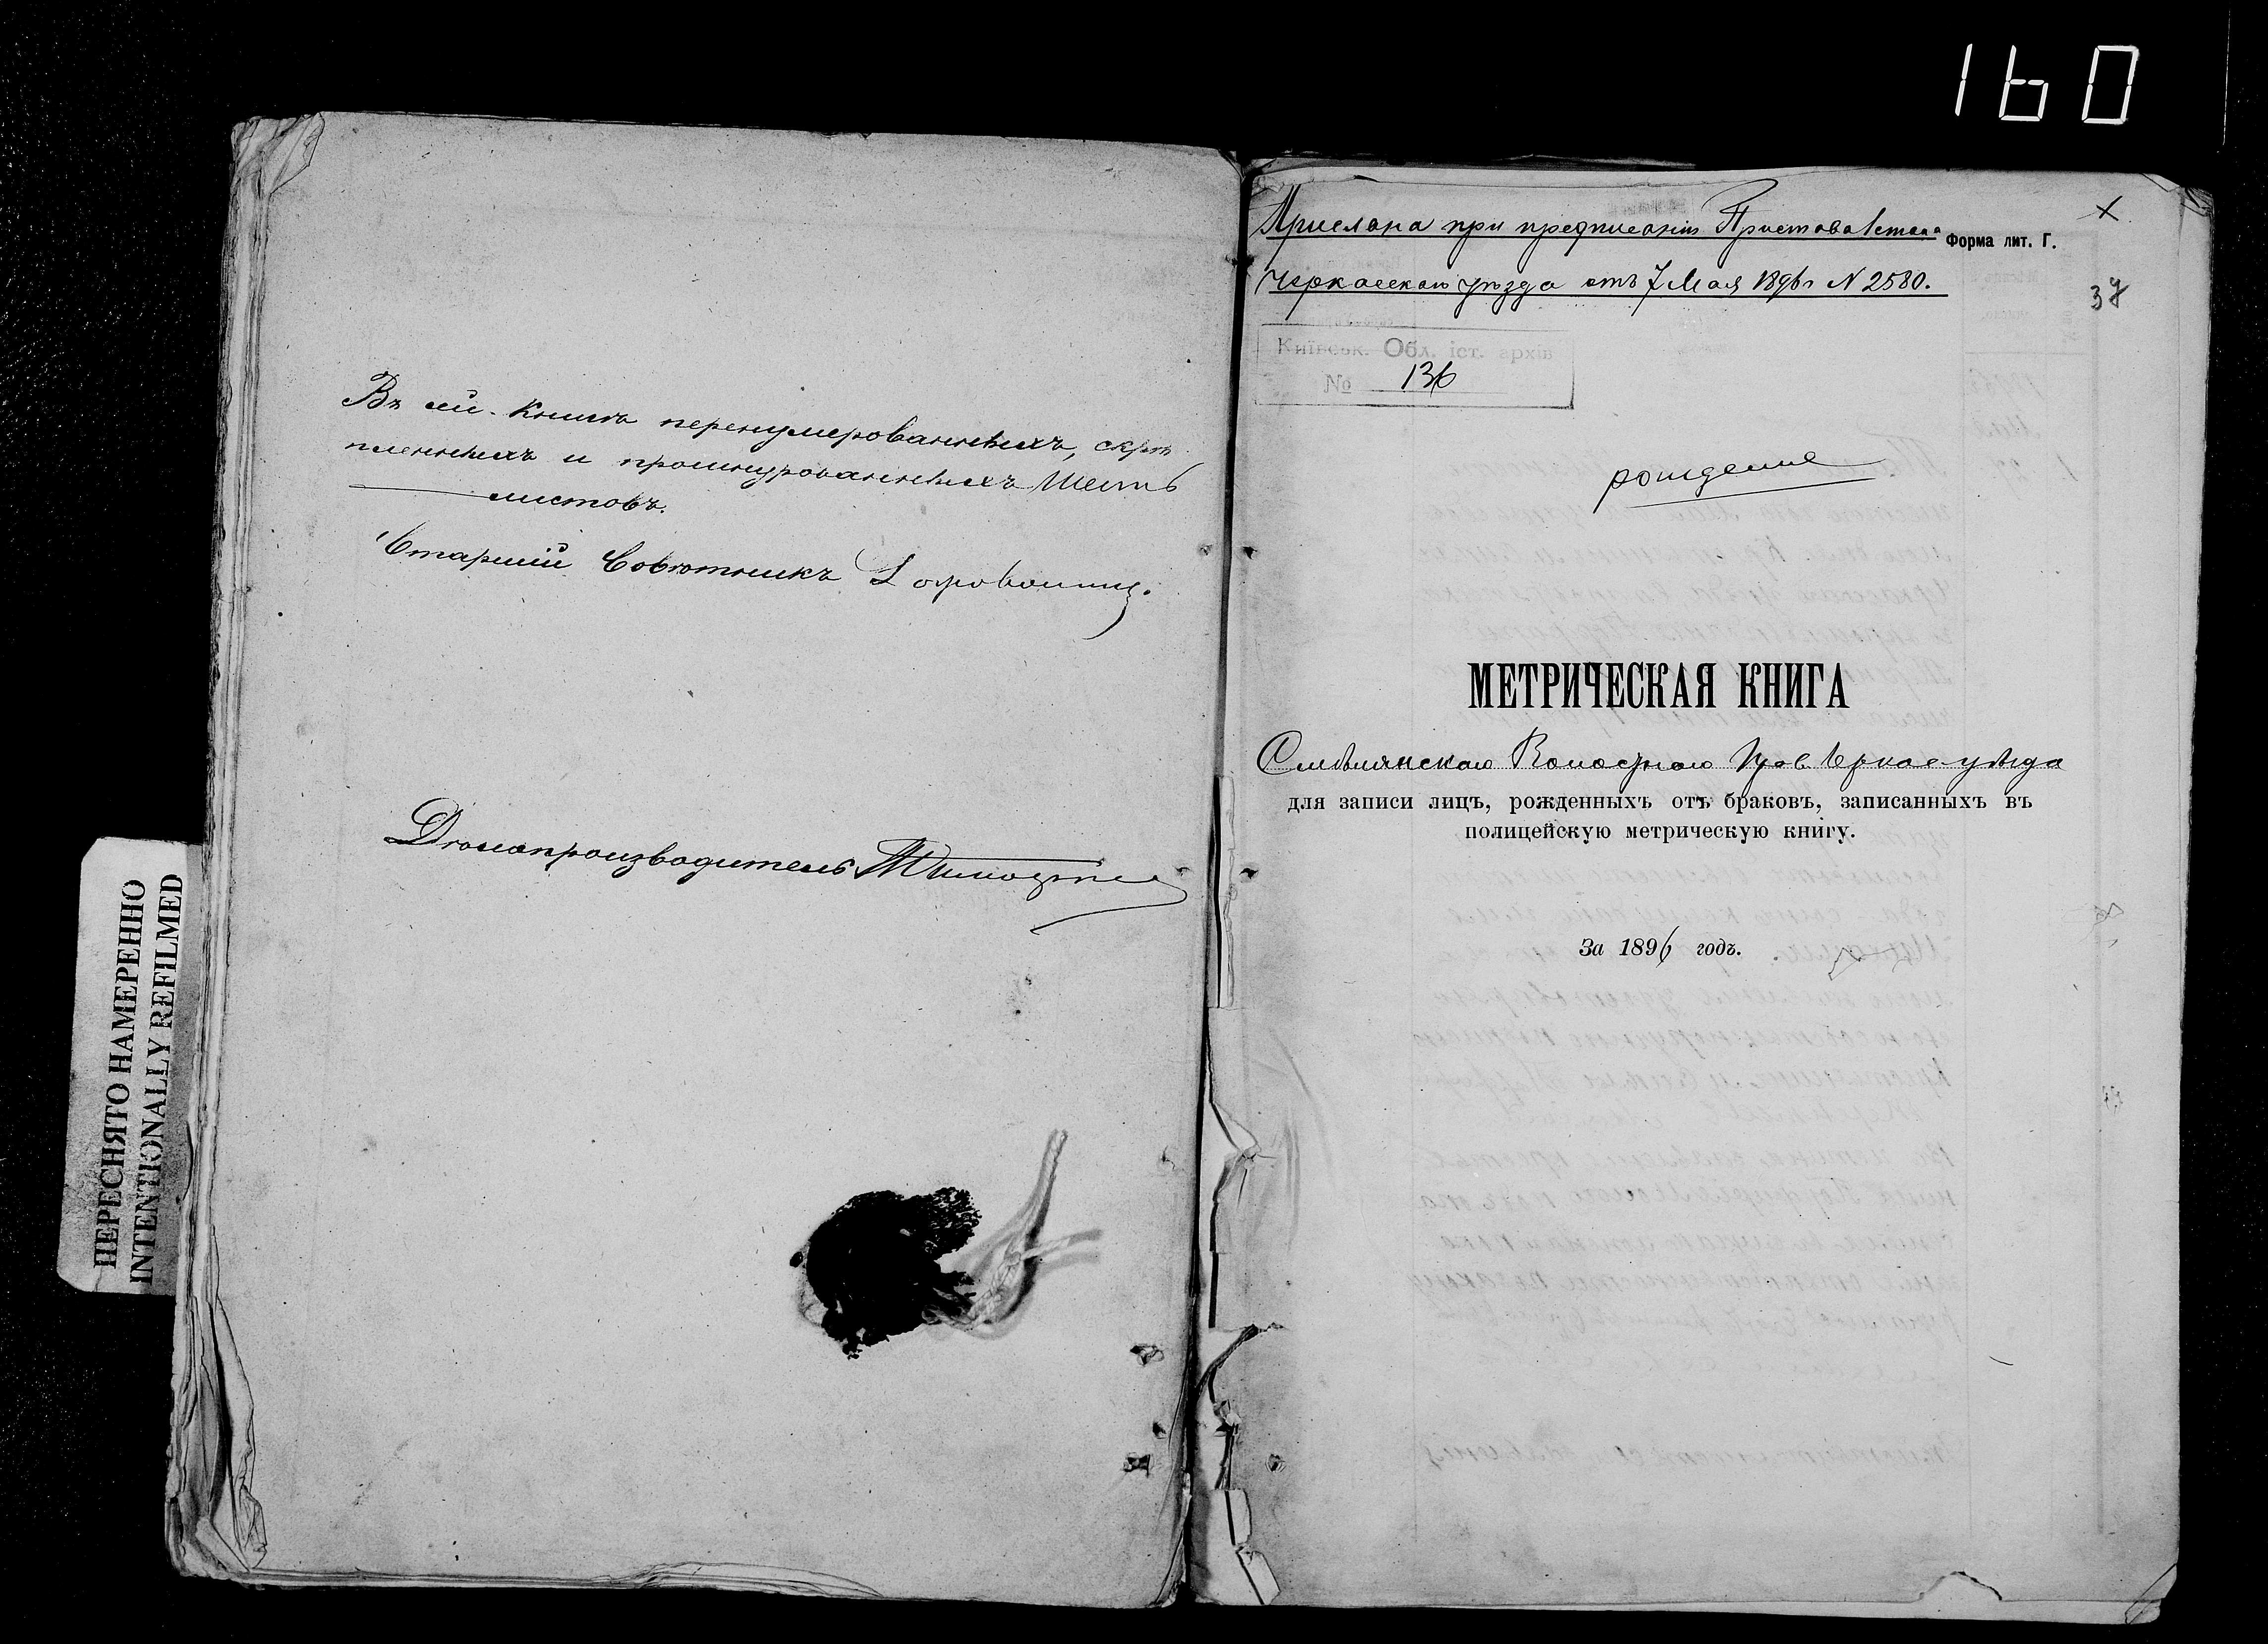 160
Въ сей книгѣ перенумерованныхъ, скрѣ
пленныхъ и прошнурованныхъ Шесть
листовъ.
Старшій Совѣтникъ
Дѣлопроизводитель
ПЕРЕСНЯТО НАМЕРЕННО
INTENTIONALLY REFILMED
Прислана при предписаніи Пристава 1 стана
Форма лит. Г.
Черкасскаго уѣзда отъ 7 Мая 1896 г N 2580.
37
Київськ. Обл. іст. архів
№ 136
рожденіе
МЕТРИЧЕСКАЯ КНИГА
Смѣлянскаго Волостного Прав Черкас уѣзда
для записи лицъ, рожденныхъ отъ браковъ, записанныхъ въ
полицейскую метрическую книгу.
За 1896 годъ.